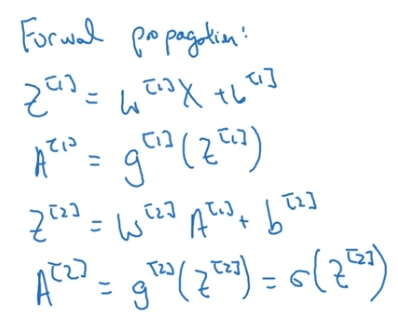 Forwal propagation:
Z^[1] = W^[1]X + b^[1]
A^[1] = g^[1](Z^[1])
Z^[2] = W^[2] A^[1] + b^[2]
A^[2] = g^[2](Z^[2]) = σ(Z^[2])